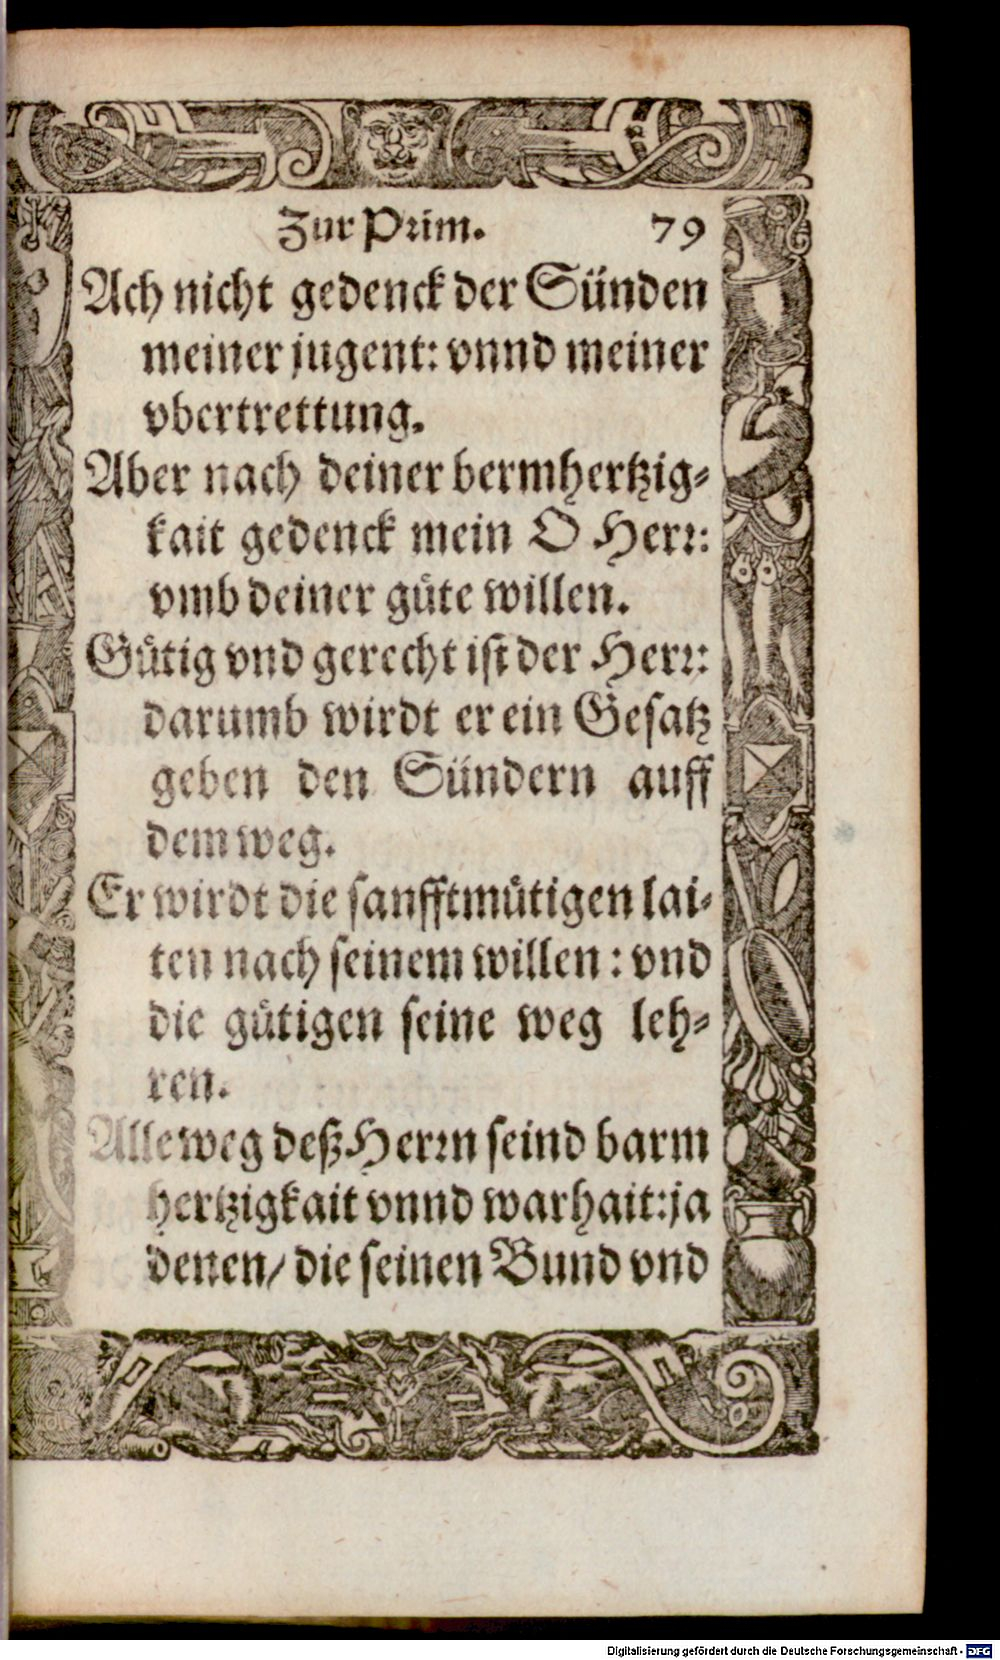 Zur Prim. 79
Ach nicht gedenck der Sünden
meiner jugent: vnnd meiner
vbertrettung.
Aber nach deiner bermhertzig⸗
kait gedenck mein O Herr:
vmb deiner guͤte willen.
Guͤtig vnd gerecht ist der Herr:
darumb wirdt er ein Gesatz
geben den Sündern auff
dem weg.
Er wirdt die sanfftmuͤtigen lai⸗
ten nach seinem willen: vnd
die guͤtigen seine weg leh⸗
ren.
Alle weg deß Herrn seind barm
hertzigkait vnnd warhait: ja
denen/ die seinen Bund vnd
Digitalisierung gefördert durch die Deutsche Forschungsgemeinschaft - DFG